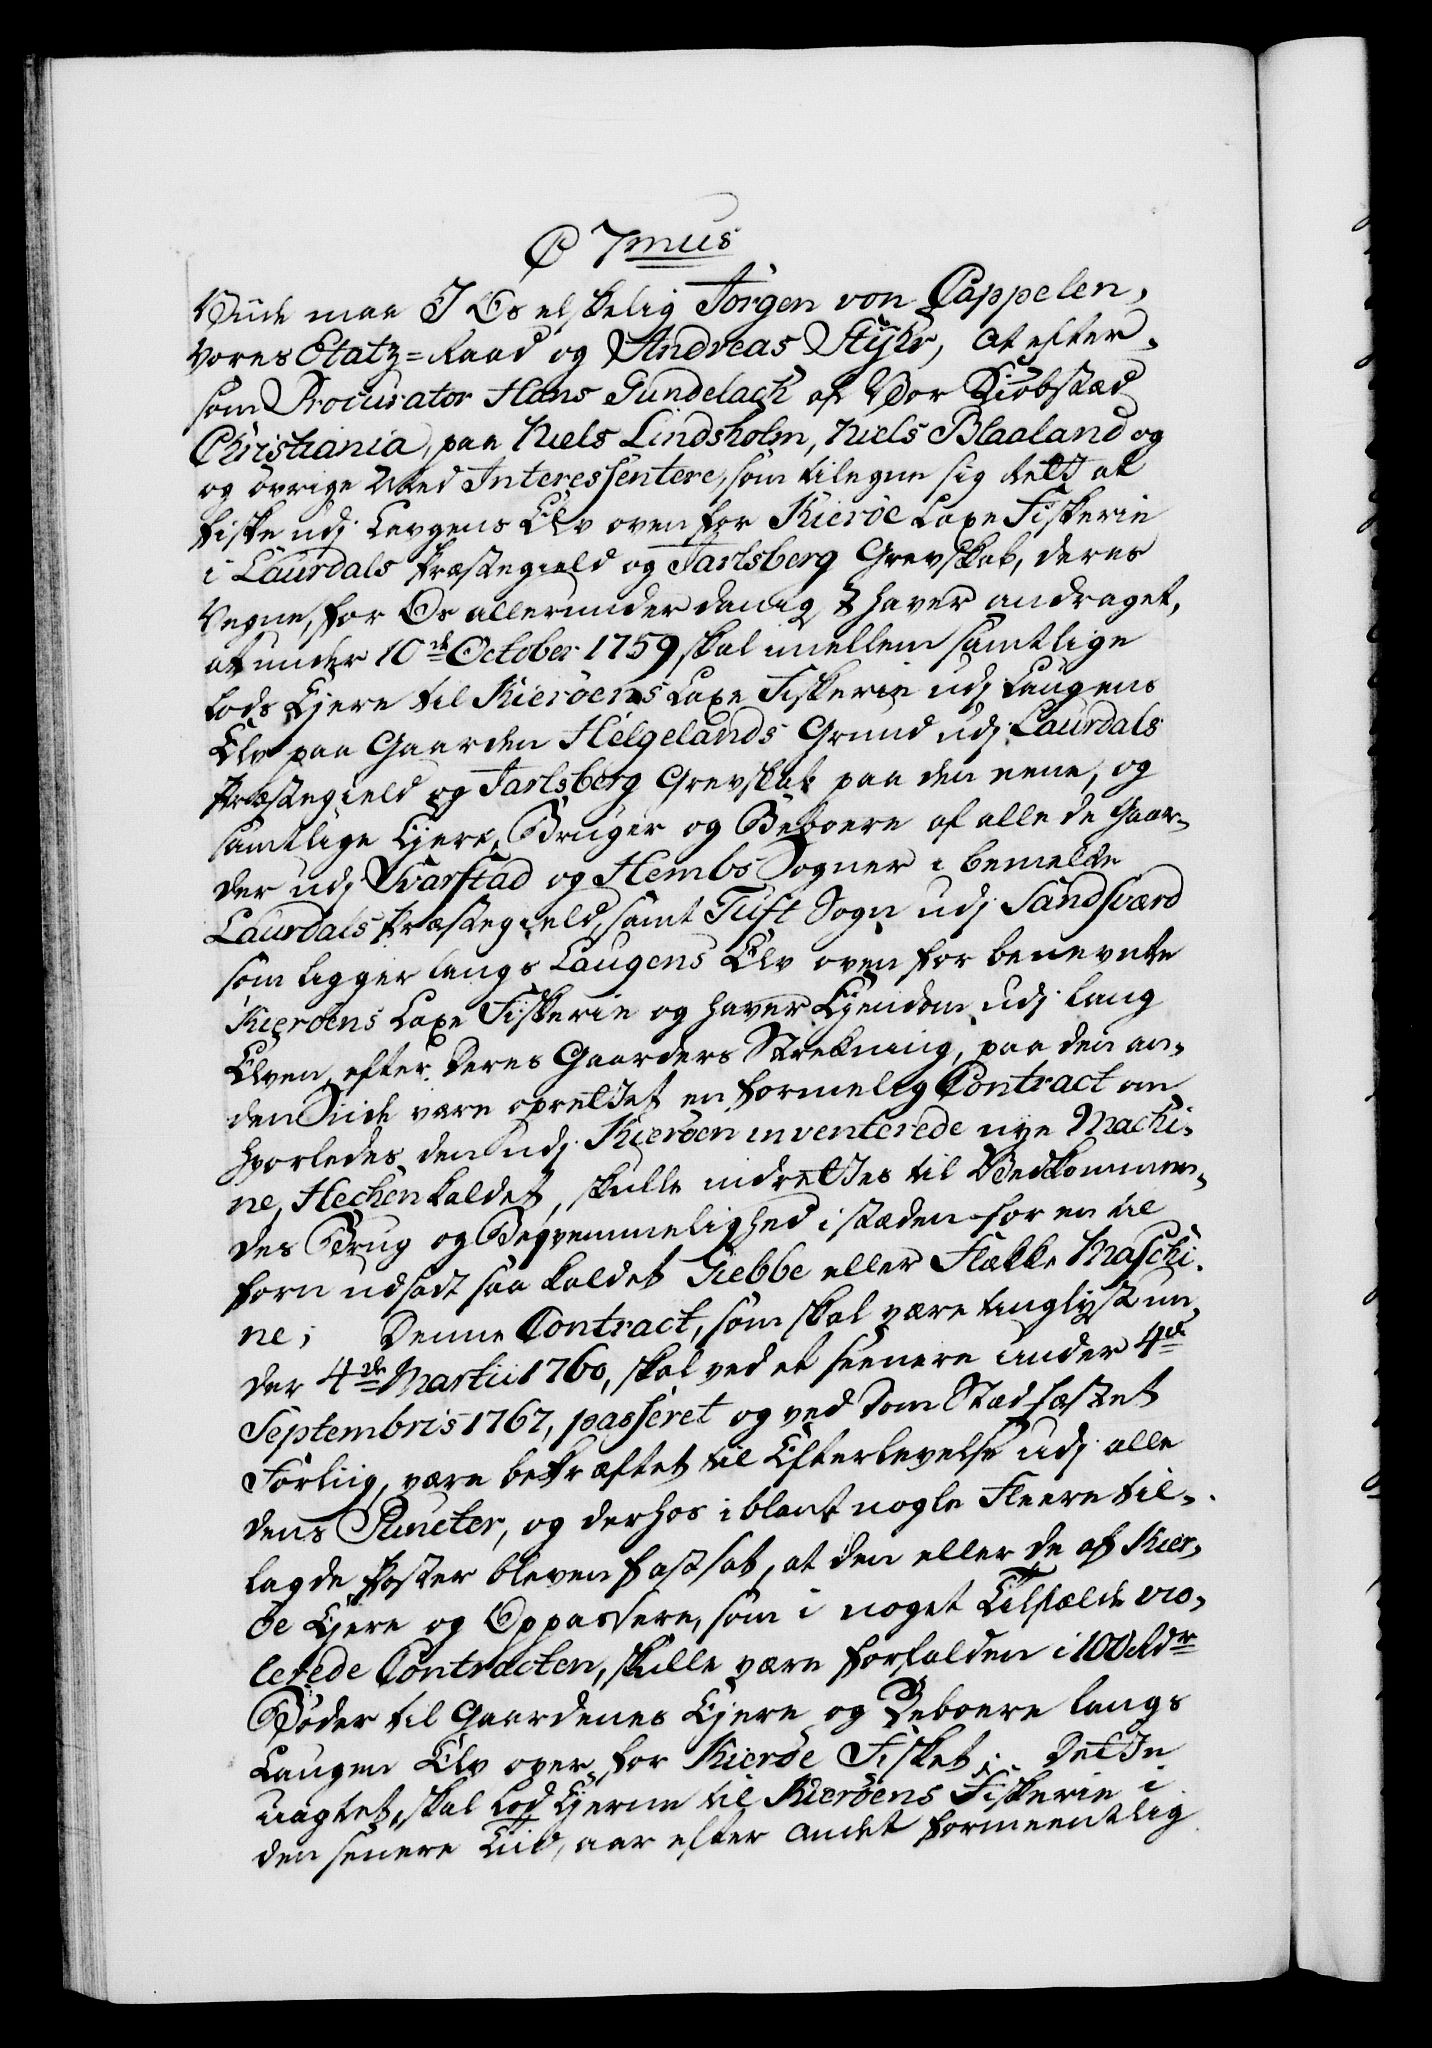 C 7mus
Viide maa I Os elskelig Jörgen von Cappelen,
vores Etatz=Raad og Andreas Styhr, at efter-
som Procurator Hans Gundelach af Vor Kiöbstæd
Christiania, paa Niels Lindsholm, Niels Blaaland og
og övrige Med Interessentere, som tilegne sig Rett at
fiske udj Lavgens Elv oven for Kieröe Laxe Fiskerie
i Laurdals Præstegield og Jarlsberg Grevskab, deres
Vegne, for Os allerunderdanigst haver andraget,
at under 10de October 1759 skal imellem samtlige
Lods Ejere til Kieröens Laxe Fiskerie udj Laugens
Elv paa Gaarden Helgelands Grund udj Laurdals
Præstegield og Jarlsberg Grevskab paa den eene, og
samtlige Ejere, Bruger og Beboere af alle de Gaar-
der udj Svarstad og Hembs Sogner i bemelde
Laurdals Præstegield, samt Tuft Sogn udj Sandsværd
som ligger langs Laugens Elv oven for benevnte
Kieröens Laxe Fiskerie og haver Ejendom udj Laug
Elven, efter deres Gaarders Strekning, paa den an-
den Siide være oprettet en formelig Contract om
hvorledes den udj Kieröen inventerede nye Machi-
ne, Hechen kaldet, skulle indrettes til Vedkommen-
des Brug og Beqvemmelighed i stæden for en til
forn udsadt saa kaldet Giebbe eller Flække Maschi-
ne; Denne Contract, som skal være tinglyst un-
der 4de Martii 1760, skal ved et seenere under 4de
Septembris 1767, passeret og ved Dom Stadfæstet
Forliig, være bekræftet til Efterlevelse udj alle
dens Puncter, og derhos iblant nogle Fleere til-
lagde Poster bleven fastsat, at den eller de af Kier-
öe Ejere og Oppassere, som i noget Tilfælde vio-
lerede Contracten, skulle være forfalden i 100 Rdr
Böder til Gaardenes Ejere og Beboere langs
Laugen Elv oven for Kieröe Fisket; Dette
uagtet, skal Lod Ejerne til Kieröens Fiskerie i
den senere Tiid, aar efter andet formeentlig